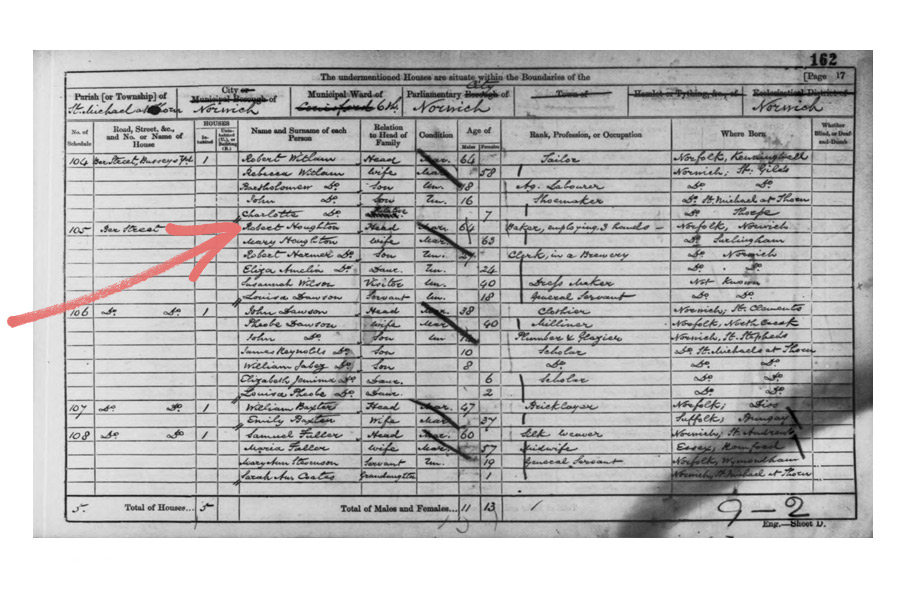 162
The undermentioned Houses are situate within the Boundaries of the [Page 17
Parish [or Township] of City or Municipal Borough of Municipal Ward of Parliamentary City Borough of Town of Hamlet or Tything, &c., of Ecclesiastical District of
St. Michael at Thorn Norwich Conisford 6th. Norwich Norwich
No. of Schedule Road, Street, &c., and No. or Name of House HOUSES Inhabited Uninhabited (U.), or Building (B.) Name and Surname of each Person Relation to Head of Family Condition Age of Males Females Rank, Profession, or Occupation Where Born Whether Blind, or Deaf-and-Dumb
104 Ber Street, Busseys Yd. 1 Robert Witham Head Mar. 64 Tailor Norfolk,
Rebecca Witham Wife Mar. 58 Norwich; St. Giles
Bartholomew Do. Son Un. 18 Ag. Labourer Do. Do.
John Do. Son Un. 16 Shoemaker Do. St. Michael at Thorn
Charlotte Do. 7 Do. Thorpe
105 Ber Street Robert Houghton Head Mar. 64 Baker, employing 3 hands Norfolk, Norwich
Mary Houghton Wife Mar. 63 Do. Surlingham
Robert Harmer Do. Son Un. 27 Clerk, in a Brewery Do. Norwich
Eliza Amelia Do. Daur. Un. 24 Do. Do.
Susannah Wilson Visitor Un. 40 Dress Maker Not Known
Louisa Dawson Servant Un. 18 General Servant Do. Do.
106 Do. Do. 1 John Dawson Head Mar. 38 Clothier Norwich; St. Clements
Phebe Dawson Wife Mar. 40 Milliner Norfolk, North Creak
John Do. Son Un Plumber & Glazier Norwich, St. Stephens
James Reynolds Do. Son 10 Scholar Do. St. Michaels at Thorn
William Jabez Do. Son 8 Do. Do. Do.
Elizabeth Jemima Do. Daur. 6 Scholar Do. Do.
Louisa Phebe Do. Daur. 2 Do. Do.
107 Do. Do. 1 William Baxter Head Mar. 47 Bricklayer Norfolk; Diss
Emily Baxter Wife Mar. 37 Suffolk; Bungay
108 Do. Do. 1 Samuel Fuller Head Mar. 60 Silk Weaver Norwich; St. Andrews
Maria Fuller Wife Mar. 57 Midwife Essex, Romford
Mary Ann Servant Un. 19 General Servant Norfolk, Wymondham
Sarah Ann Coates Grandaughter 1 Norwich, St. Michael at Thorn
5 Total of Houses... 5 Total of Males and Females... 11 13
9-2
Eng.—Sheet D.